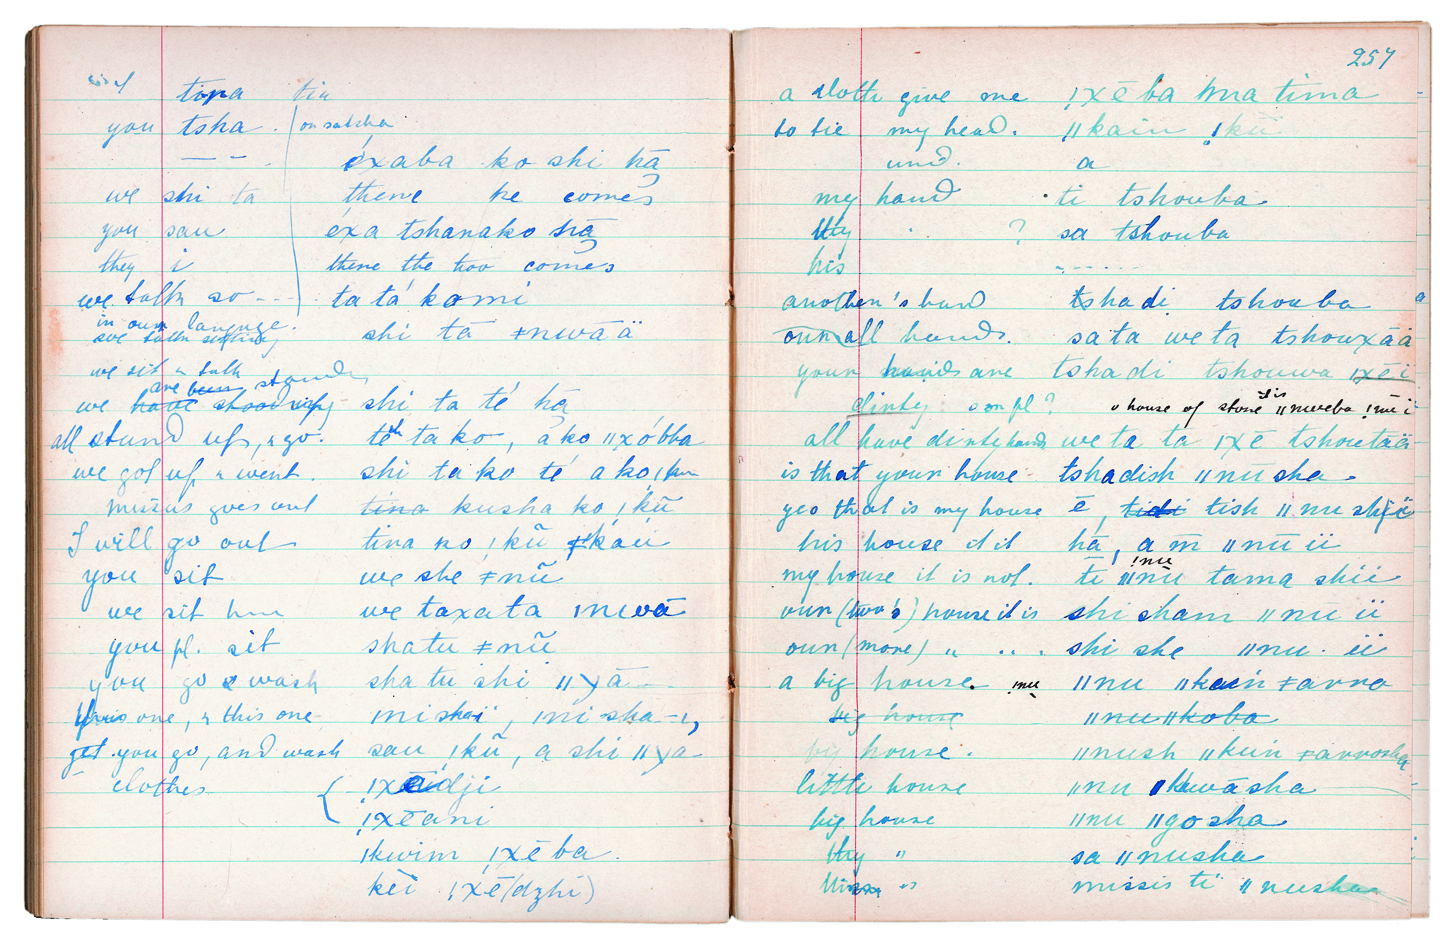 I tina tia
you tsha . on satcha
— – . éxaba ko shi hā
we shi ta there he comes
you sau éxa tshanako hā
they i there the two comes
we talk so --- ta tá komi
in our language.
we talk sitting shi tā ǂnwāä
we sit & talk
are been standing
we have stood up shi ta té hā
all stand up, & go. téh ta ko, áko ǁxóbba
we got up & went. shi ta ko té a ko
missus goes out tina kusha ko ǀkũ
I will go out tina ko ǀkũ
you sit we she ǂnũ
we sit we taxata ǀnwā
you pl. sit shatu ǂnũ
you go & wash sha tu shi ǁxā
this one, & this one ini ini sha
get you go, and wash sau ǀkũ, a shi ǁxa
clothes ǀxēdji
ǃxēani
ǀkwim ǃxēba.
kēi ǃxē(dzhi)
257
a cloth give me ǃxēba ma tima
to tie my head. ǁkain ǃkū
und. a
my hand ti tshouba
thy " ? sa tshouba
his ------
another's hand tshadi tshouba
our all hands. sa ta we ta tshouxāä
your hands are tshadi tshouwa ǀxēi
dirty son pl? house of stone it is ǁnweba ǃnu i
all have dirty hands we ta ta ǀxē tshoutāä
is that your house tshadish ǁnusha
yes that is my house ē, tidi tish ǁnu
his house it is hā, a m̄ ǁnū ii
ǃnu
my house it is not. ti ǁnu tama shii
our (two's) house it is shi sham ǁnu ii
our (more) " " " shi she ǁnu ii
a big house. ǃnu ǁnu ǁkain ǂarro
big house ǁnu ǁkoba
big house. ǁnush ǁkain ǂarrosha
little house ǁnu ǀkwāsha
big house ǁnu ǁgosha
thy " sa ǁnusha
Miss " missis ti ǁnusha